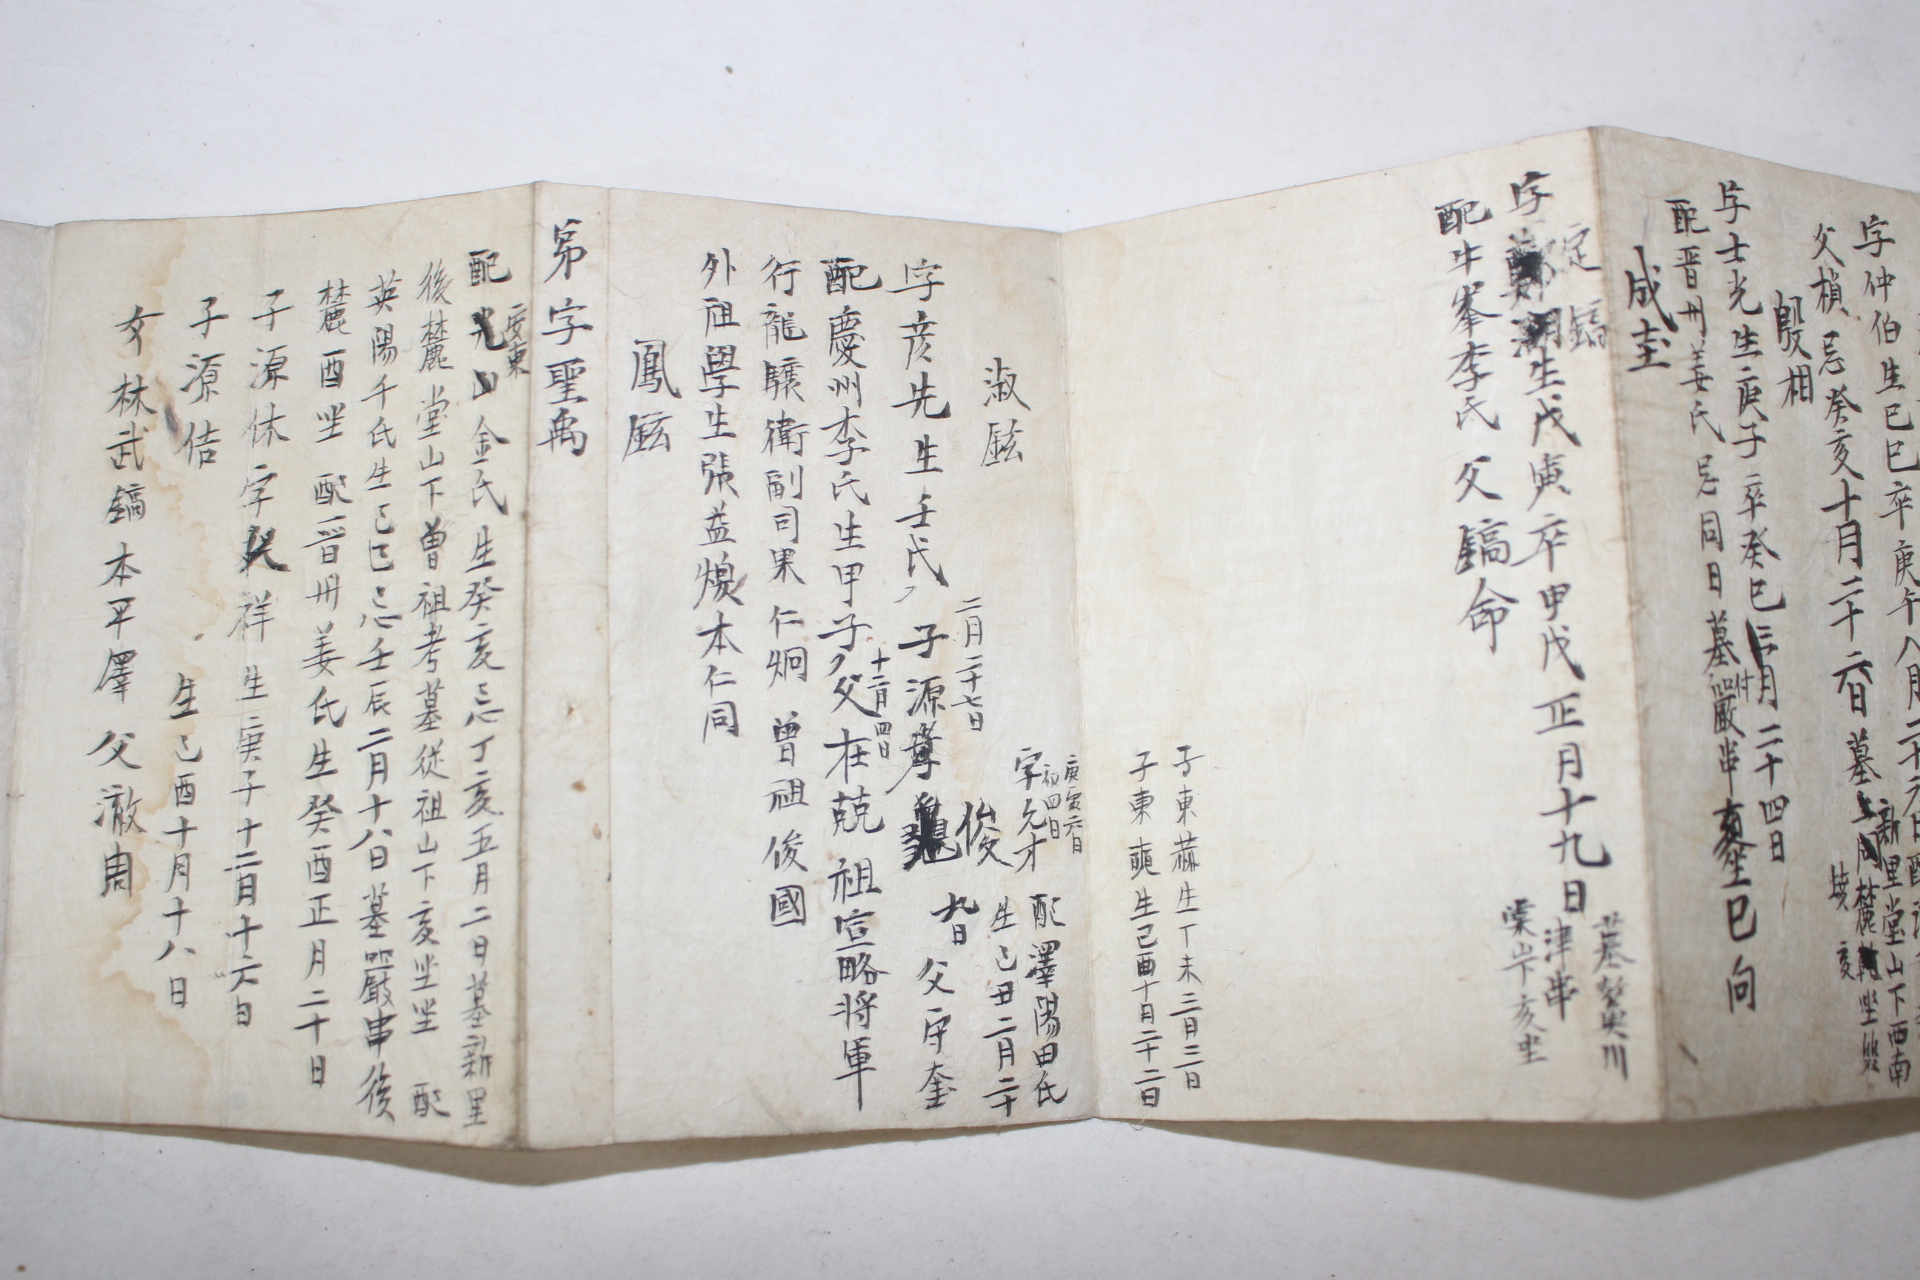 字仲伯生己巳卒庚午八月二十九日配
父楨忌癸亥十月二十六日墓
新里堂山下酉南
殷相
字士光生庚子卒癸巳三月二十四日
配晋州姜氏忌同日墓嚴串
坐巳向
成圭
定鎬
字生戊寅卒甲戌正月十九日
津串
亥坐
配牛峯李氏父鎬命
子東蘇生丁未三月三日
子東奭生己酉十月二十二日
庚寅六日
初四日
字允才配澤陽田氏
生己丑二月二十
九日
淑鉉
二月二十七日
俊
字彦先生壬戌子源孝
父守奎
配慶州李氏生甲子父在兢祖宣略将軍
十二月四日
行龍驤衛副司果仁炯曾祖俊國
外祖學生張益煥本仁同
鳳鉉
弟字聖禹
安東
配金氏生癸亥忌丁亥五月二日墓新里
後麓堂山下曾祖考墓從祖山下亥坐坐配
英陽千氏生己巳忌壬辰二月十八日墓嚴串後
麓酉坐配晋州姜氏生癸酉正月二十日
子源休字祥生庚子十二月十六日
子源佶生己酉十月十八日
女林武鎬本平澤父澈周